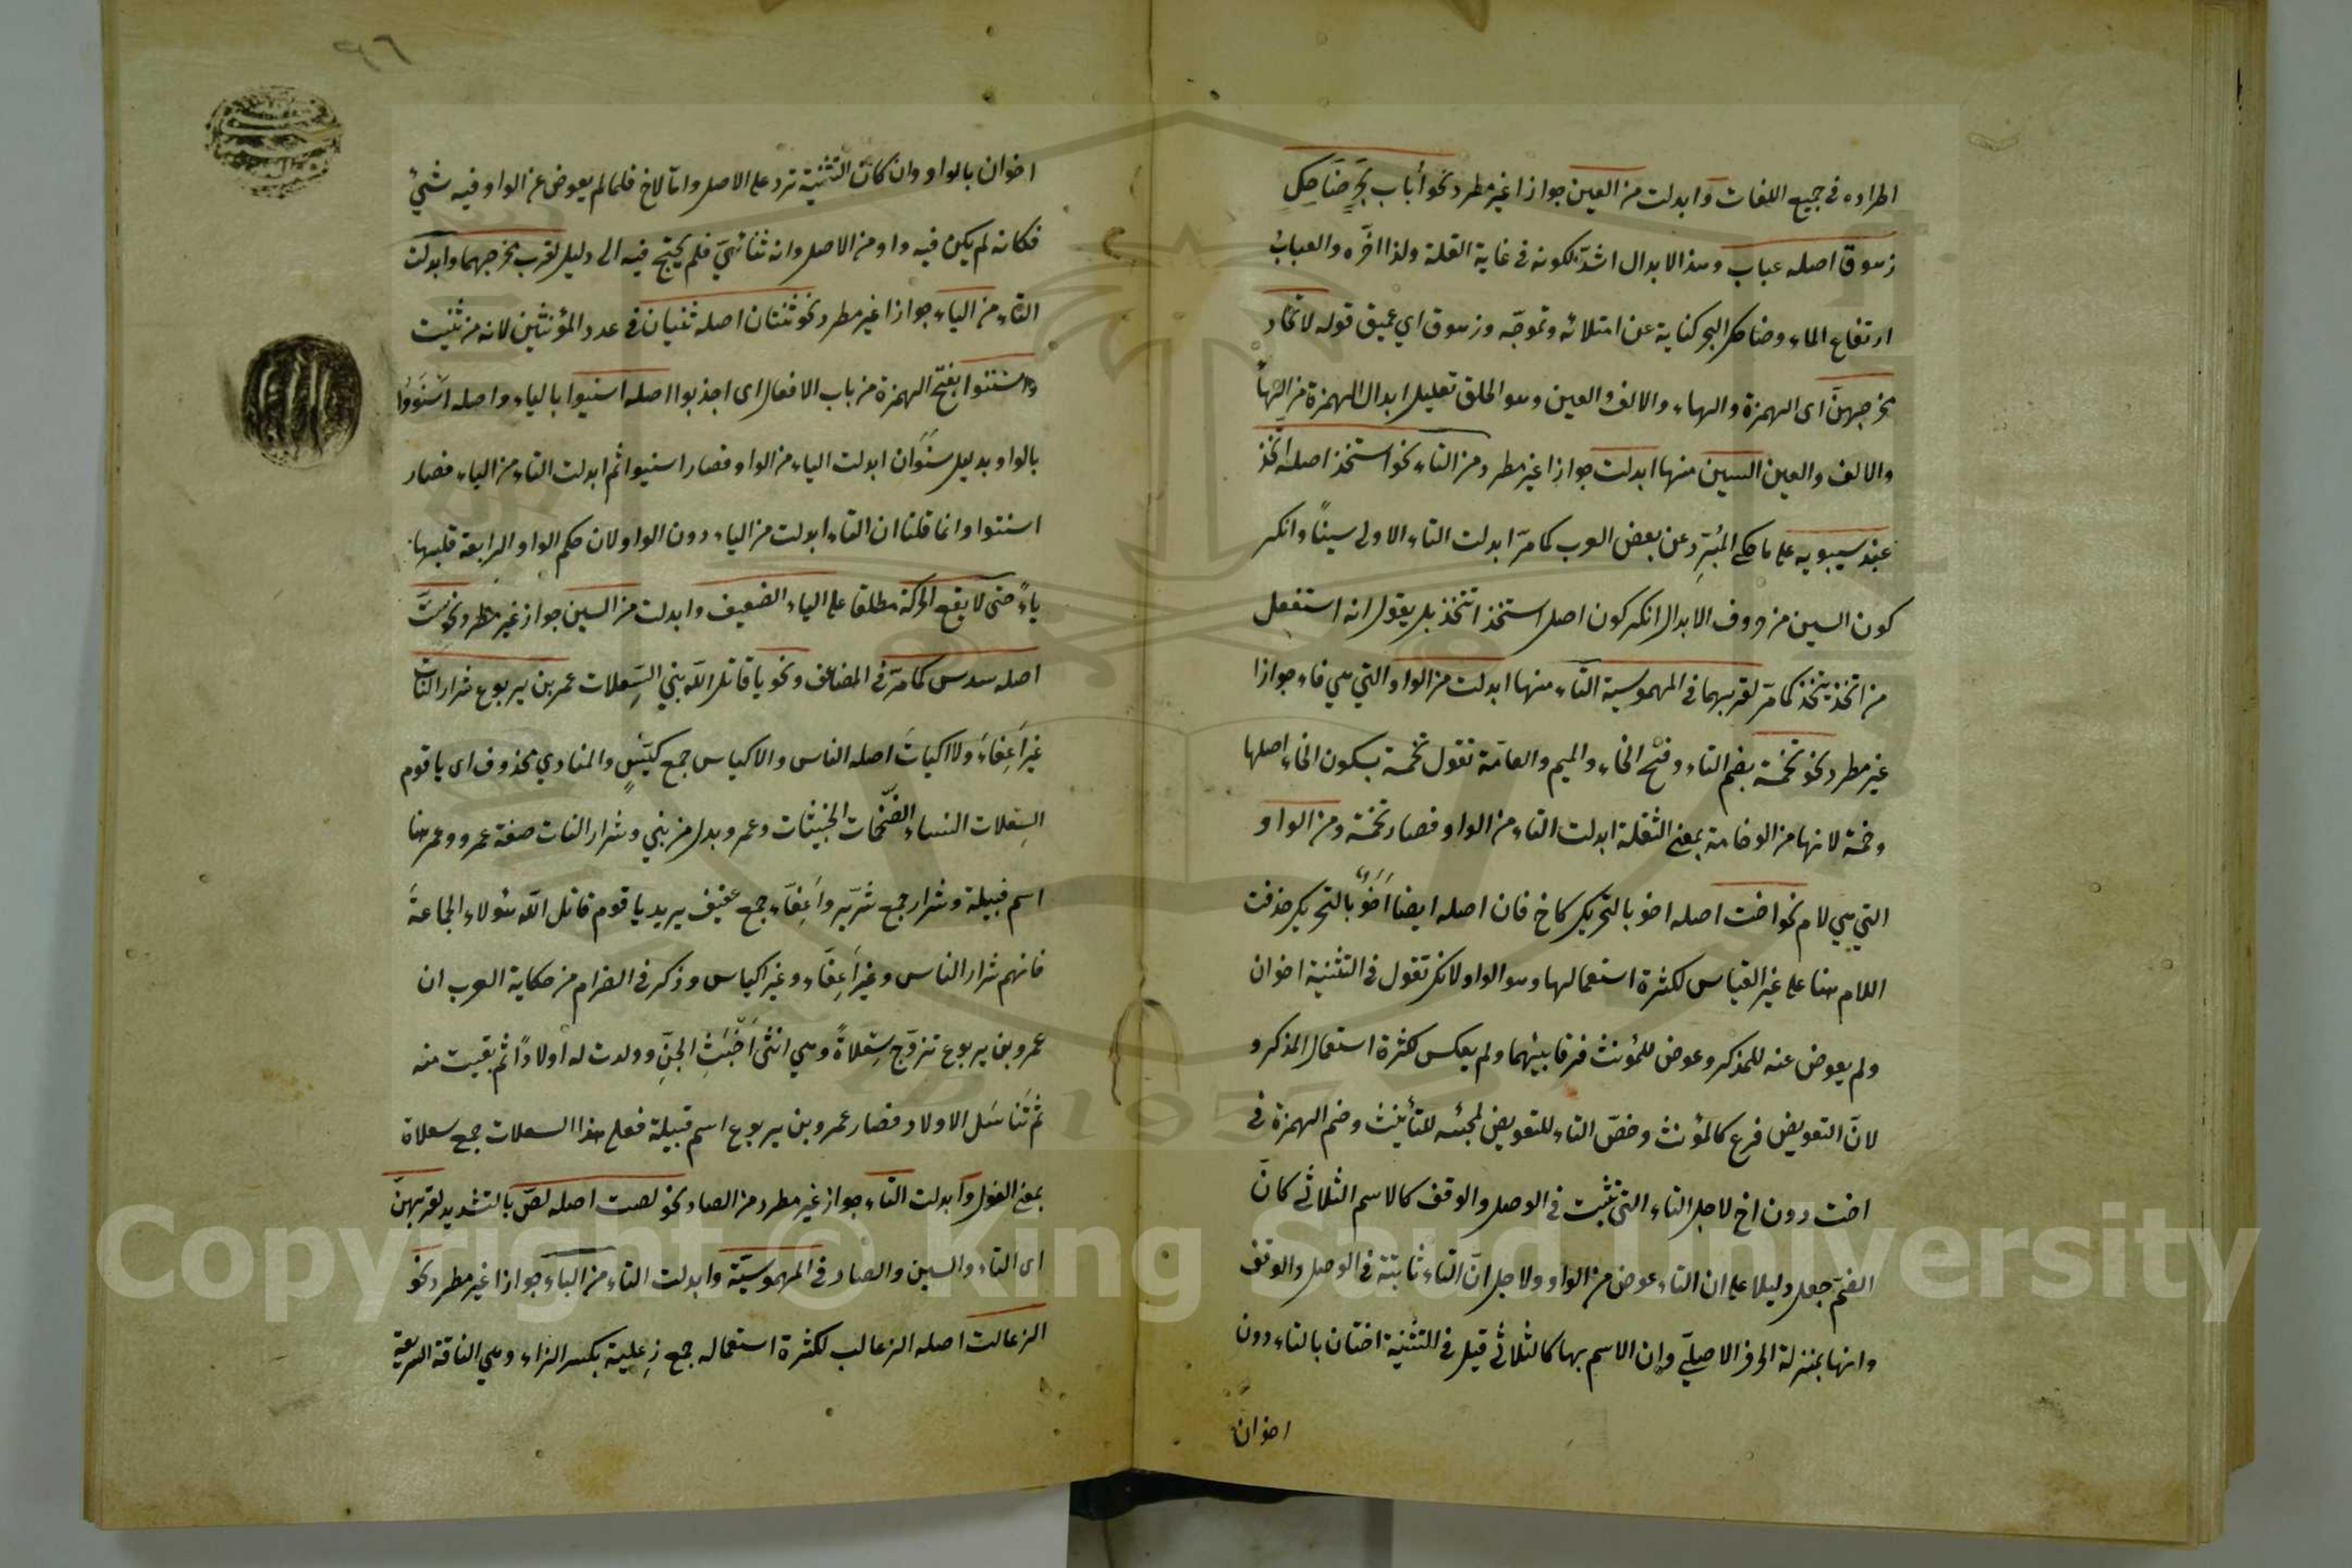 اطراده فى جميع اللغات وابدلت من العين جوازا غير مطرد نحو أباب بَحْرٍ ضَاحِكٍ
زهوق اصله عباب وهذا الابدال اشدّ لكونه فى غاية القلة ولذا اخّره والعبابُ
ارتفاع الماء وضاحك البحر كناية عن امتلائه وتموجّه وزهوق اي عميق قوله لاتحاد
مخرجهنّ اى الهمزة والهاء والالف والعين وهو الحلق تعليل ابدال الهمزة من الهاء
والالف والعين السين منها ابدلت جوازا غير مطرد من التاء نحو استخذ اصله اتّخذ
عند سيبويه على ما حكى المُبَرِّد عن بعض العرب كما مرّ ابدلت التاء الاولى سينًا وانكر
كون السين من حروف الابدال انكر كون اصل استخذ اتتخذ بل يقول انه استفعل
من اتخذ يتخذ كما مرّ لقربهما فى المهموسية التاء منها ابدلت من الواو التي هي فاء جوازا
غير مطرد نحو تخمة بضم التاء وفتح الخاء والميم والعامّة تقول تخمة بسكون الخاء اصلها
وخمة لانها من الوخامة بمعنى الثقلة ابدلت التاء من الواو فصار تخمة ومن الواو
التي هي لام نحو اخت اصله اخو بالتحريك كاخ فان اصله ايضا أَخَوٌ بالتحريك حذفت
اللام هنا على غير القياس لكثرة استعمالها وهو الواو لانك تقول فى التثنية اخوان
ولم يعوض عنه للمذكر وعوض للمؤنث فرقا بينهما ولم يعكس لكثرة استعمال المذكر و
لانّ التعويض فرع كالمؤنث وخصّ التاء للتعويض لمجيئه للتأنيث وضم الهمزة فى
اخت دون اخ لاجل التاء التى تثبت فى الوصل والوقف كالاسم الثلاثي كانّ
الضمّ جعل دليلا على ان التاء عوض من الواو ولاجل انّ التاء ثابتة فى الوصل والوقف
وانها بمنزلة الحرف الاصليّ وان الاسم بها كالثلاثي قيل فى التثنية اختان بالتاء دون
اخوان
٩٦
اخوان بالواو وان كانت التثنية ترد على الاصل وامّا لاخ فلما لم يعوض عن الواو فيه شيئ
فكانه لم يكن فيه واو من الاصل وانه ثنائيّ فلم يحتج فيه الى دليل لقرب مخرجهما وابدلت
التاء من الياء جوازا غير مطرد نحو ثنتان اصله ثنيان فى عدد المؤنثين لانه من ثنيت
واسنتوا بفتح الهمزة من باب الافعال اى اجذبوا اصله اسنيوا بالياء واصله اَسْنَوُوا
بالواو بدليل سَنَوَان ابدلت الياء من الواو فصار اسنيوا ثم ابدلت التاء من الياء فصار
اسنتوا وانما قلنا ان التاء ابدلت من الياء دون الواو لان حكم الواو الرابعة قلبها
ياءً حتى لا يقع الحركة مطلقا على الياء الضعيف وابدلت من السين جواز غير مطرد نحو سِتّ
اصله سدس كما مرّ فى المضاعف ونحو يا قاتل اللّه بني السِّعلات عمر بن يربوع شرار النات
غيرَ أَعِفَاءَ ولا اكياتَ اصله الناس والاكياس جمع كَيّسٍ والمنادي محذوف اى يا قوم
السِعلات النساء الضخّات الخبيثات وعمرو بدل من بني وشرار النات صفة عمرو وعمر هنا
اسم قبيلة وشرار جمع شرّير وأَعِفّاء جمع عفيف يريد يا قوم قاتل اللّه هؤلاء الجماعةَ
فانهم شرار الناس وغير أَعِفّاء وغير اكياس وذكر فى الضرام من حكاية العرب ان
عمرو بن يربوع تزوّج سِعْلاةً وهي انثى اَخْبَثِ الجِنّ وولدت له اولادًا ثم بقيت منه
ثم تَنَاسَل الاولاد فصار عمرو بن يربوع اسم قبيلة فعلى هذا السعلات جمع سعلاة
بمعنى الغول وابدلت التاء جواز غير مطرد من الصاد نحو لصت اصله لصّ بالتشديد لقربهنّ
اى التاء والسين والصاد فى المهموسيّة وابدلت التاء من الباء جوازا غير مطرد نحو
الزعالت اصله الزعالب لكثرة استعماله جمع زِعلبة بكسر الزاء وهي الناقة السريعة
Copyright © King Saud University
1957